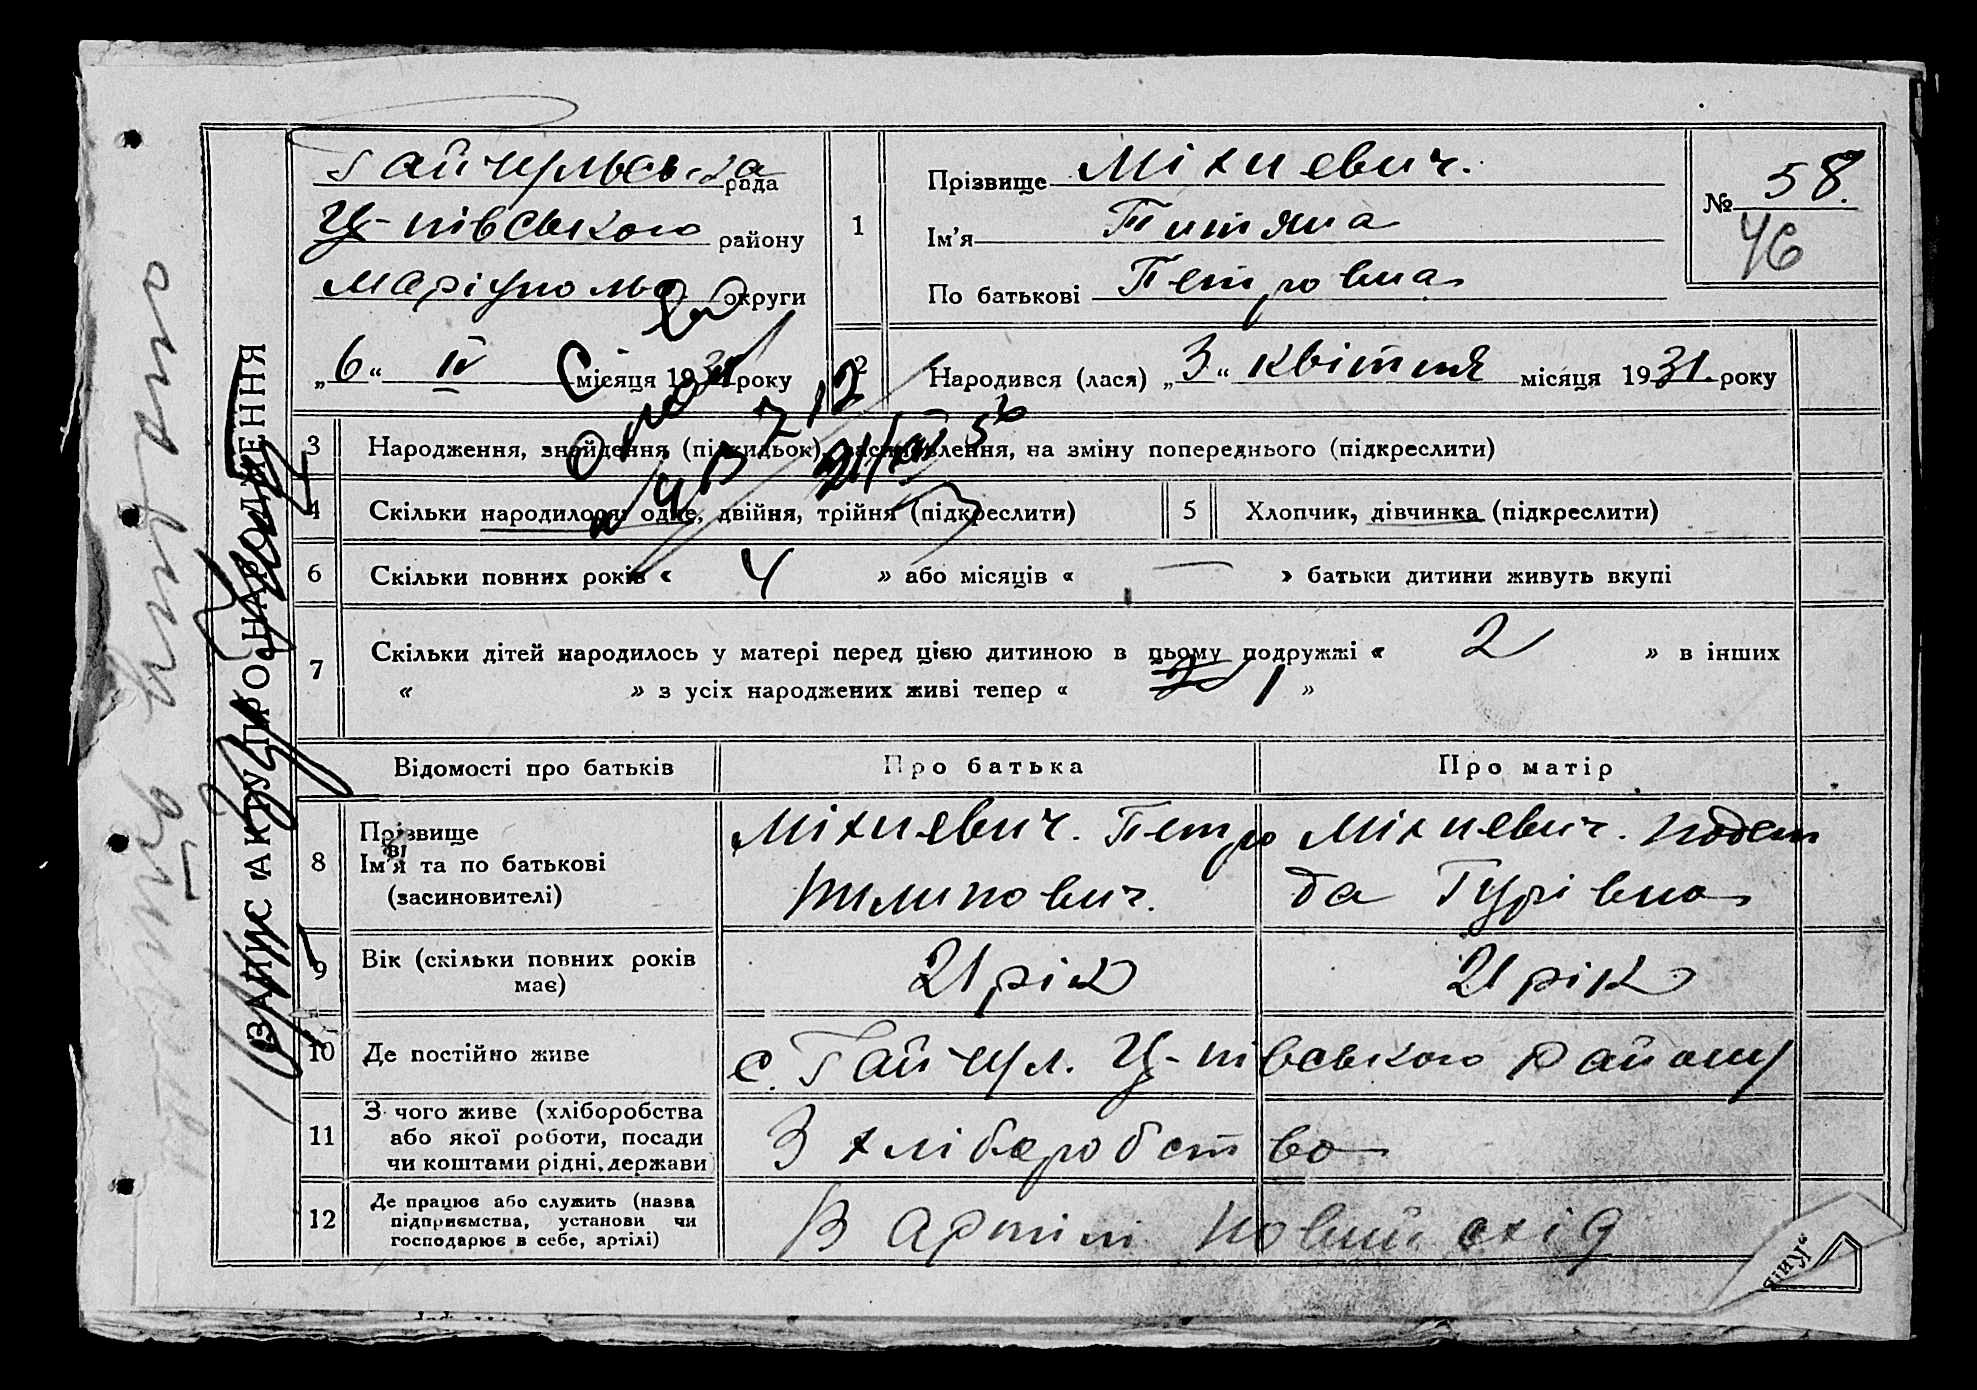 Гайчульська рада
Ц-півського району
Маріуполь округи
„6“ IV місяця 1931 року
1
Прізвище Міхневич.
Ім'я Титяна
По батькові Петровна
№ 58.
46
2
Народився (лася) „3“ квітня місяця 1931 року
ЗАПИС АКТУ ПРО НАРОДЖЕННЯ
3 Народження, знайдення (підкидьок), засиновлення, на зміну попереднього (підкреслити)
4 Скільки народилося: одне, двійня, трійня (підкреслити)
5 Хлопчик, дівчинка (підкреслити)
6 Скільки повних років « 4 » або місяців « — » батьки дитини живуть вкупі
7 Скільки дітей народилось у матері перед цією дитиною в цьому подружжі « 2 » в інших
« » з усіх народжених живі тепер « 1 »
Відомості про батьків Про батька Про матір
8 Прізвище
Ім'я та по батькові
(засиновителі)
Міхневич. Петро
Пилипович.
Міхневич. Надеж
да Гурівна
9 Вік (скільки повних років
має)
21 рік
21 рік
10 Де постійно живе
с. Гайчул. Ц-півського району
11 З чого живе (хліборобства
або якої роботи, посади
чи коштами рідні, держави
З хлібаробство
12 Де працює або служить (назва
підприємства, установи чи
господарює в себе, артілі)
В артілі новий схід